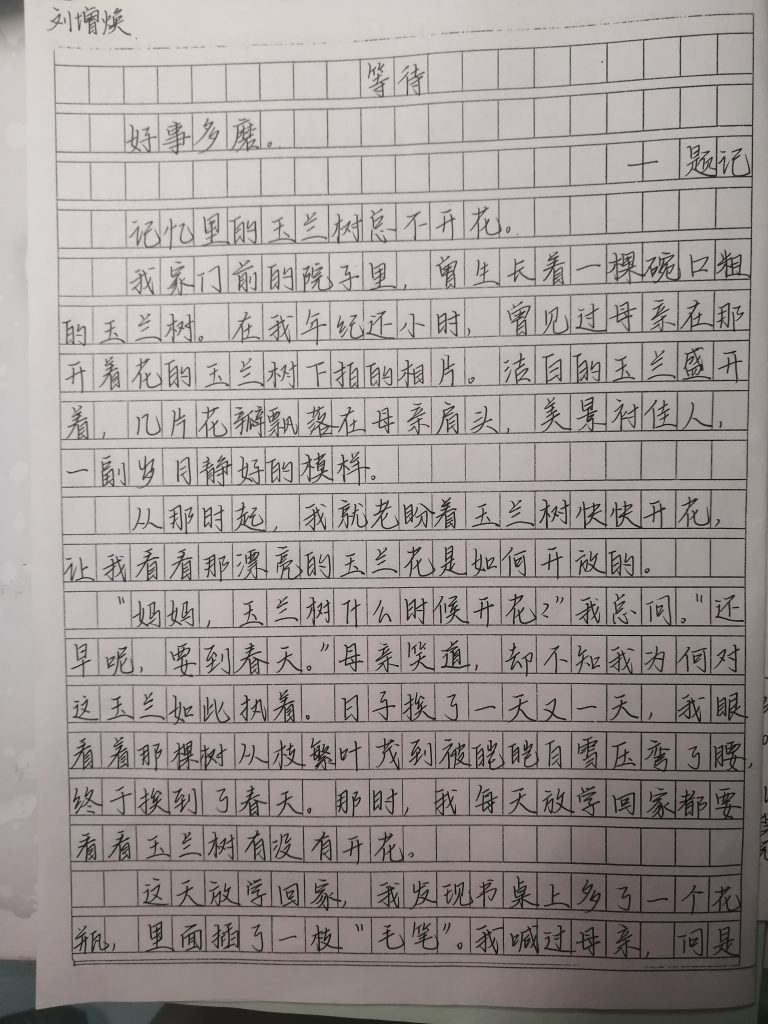 刘增焕
等待
好事多磨。
— 题记
记忆里的玉兰树总不开花。
我家门前的院子里，曾生长着一棵碗口粗
的玉兰树。在我年纪还小时，曾见过母亲在那
开着花的玉兰树下拍的相片。洁白的玉兰盛开
着，几片花瓣飘落在母亲肩头，美景衬佳人，
一副岁月静好的模样。
从那时起，我就老盼着玉兰树快快开花，
让我看看那漂亮的玉兰花是如何开放的。
“妈妈，玉兰树什么时候开花？”我总问。“还
早呢，要到春天。”母亲笑道，却不知我为何对
这玉兰如此执着。日子挨了一天又一天，我眼
看着那棵树从枝繁叶茂到被皑皑白雪压弯了腰，
终于挨到了春天。那时，我每天放学回家都要
看看玉兰树有没有开花。
这天放学回家，我发现书桌上多了一个花
瓶，里面插了一枝“毛笔”。我喊过母亲，问是